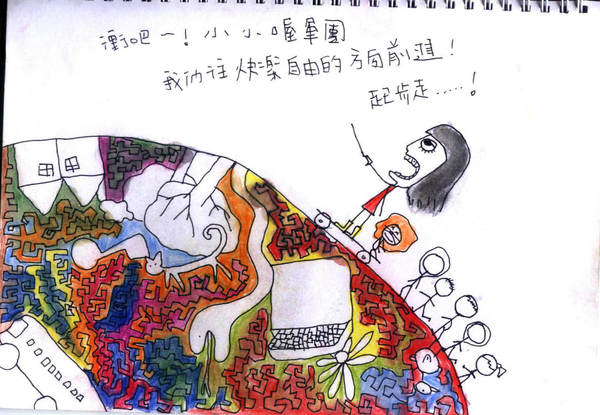 衝吧～！小小喔軍團
我们往快樂自由的方向前進！
起步走.....！